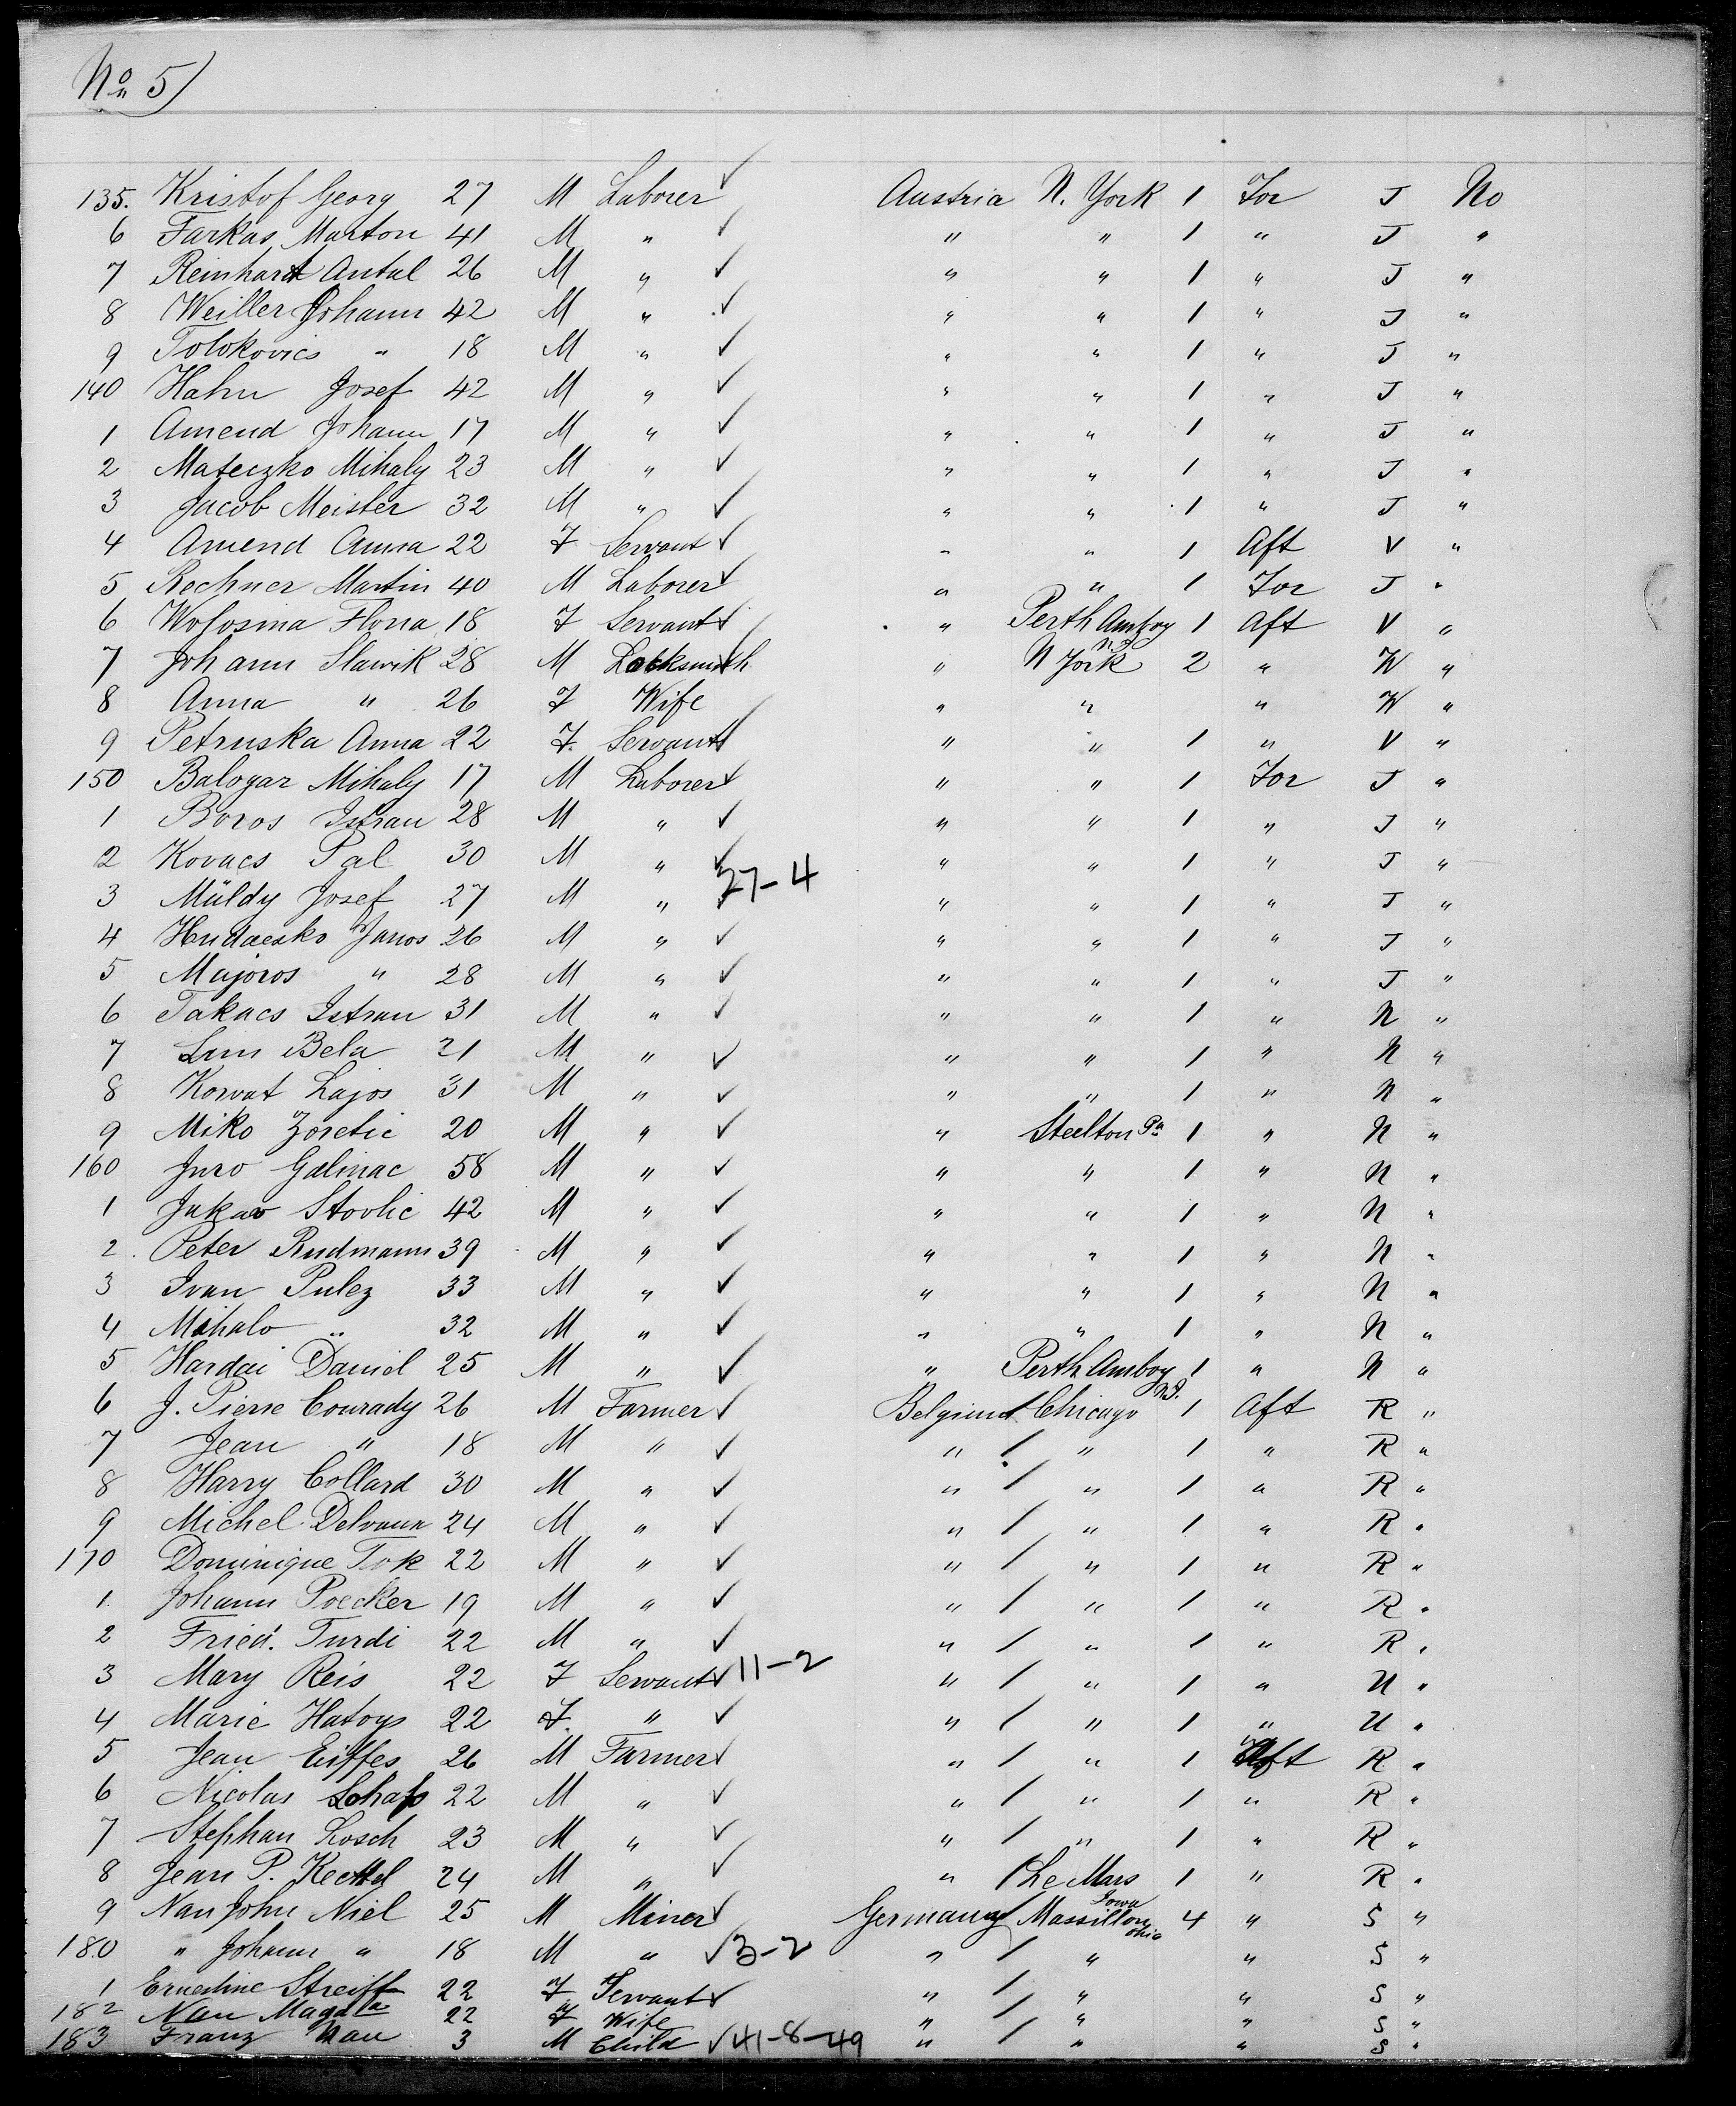 No 5)
135. Kristof Georg 27 M Laborer ✓ Austria N. York 1 For J No
6 Farkas Marton 41 M " ✓ " " 1 " J "
7 Reinhardt Antal 26 M " ✓ " " 1 " J "
8 Weiller Johann 42 M " ✓ " " 1 " J "
9 Tolokovics " 18 M " ✓ " " 1 " J "
140 Hahn Josef 42 M " ✓ " " 1 " J "
1 Amend Johann 17 M " ✓ " " 1 " J "
2 Mateczko Mihaly 23 M " ✓ " " 1 " J "
3 Jacob Meister 32 M " ✓ " " 1 " J "
4 Amend Anna 22 F Servant ✓ " " 1 Aft V "
5 Rechner Martin 40 M Laborer ✓ " " 1 For J "
6 Wolosina Ilona 18 F Servant ✓ " Perth Amboy N.J. 1 Aft V "
7 Johann Slawik 28 M Locksmith " N York 2 " W "
8 Anna " 26 F Wife " " " W "
9 Petruska Anna 22 F. Servant ✓ " " 1 " V "
150 Balogar Mihaly 17 M Laborer ✓ " " 1 For J "
1 Boros Istvan 28 M " ✓ " " 1 " J "
2 Kovacs Pal 30 M " ✓ " " 1 " J "
3 Müldy Josef 27 M " ✓ 27-4 " " 1 " J "
4 Hudacsko Janos 26 M " ✓ " " 1 " J "
5 Majoros " 28 M " ✓ " " 1 " J "
6 Takacs Istvan 31 M " ✓ " " 1 " N "
7 Bela 21 M " ✓ " " 1 " N "
8 Korvat Lajos 31 M " ✓ " " 1 " N "
9 Miko Zoretic 20 M " ✓ " Steelton Pa 1 " N "
160 Juro Galinac 58 M " ✓ " " 1 " N "
1 Jukav Stovlic 42 M " ✓ " " 1 " N "
2. Peter Rudmann 39 M " ✓ " " 1 " N "
3 Ivan Pulez 33 M " ✓ " " 1 " N "
4 Mihalo " 32 M " ✓ " " 1 " N "
5 Hardai Daniel 25 M " ✓ " Perth Amboy N.J. 1 " N "
6 J. Pierre Conrady 26 M Farmer ✓ Belgium / Chicago 1 Aft R "
7 Jean " 18 M " ✓ " / " 1 " R "
8 Harry Collard 30 M " ✓ " / " 1 " R "
9 Michel Delvaux 24 M " ✓ " / " 1 " R "
170 Dominique Tok 22 M " ✓ " / " 1 " R "
1. Johann Poecker 19 M " ✓ " / " 1 " R "
2 Fried. Turdi 22 M " ✓ " / " 1 " R "
3 Mary Reis 22 F Servant ✓ 11-2 " / " 1 " U "
4 Marie Hatoys 22 F. " ✓ " / " 1 " U "
5 Jean Eiffes 26 M Farmer ✓ " / " 1 Aft R "
6 Nicolas 22 M " ✓ " / " 1 " R "
7 Stephan Losch 23 M " ✓ " / " 1 " R "
8 Jean P. 24 M " ✓ " / Le Mars Iowa 1 " R "
9 Nau John Niel 25 M Miner ✓ Germany / Massillon Ohio 4 " S "
180 " Johann " 18 M " ✓ 3-2 " / " " S "
1 Ernestine Streiff 22 F Servant ✓ " / " " S "
182 Nau Magdla 22 F Wife " / " " S "
183 Franz Nau 3 M Child ✓ 41-8-49 " / " " S "